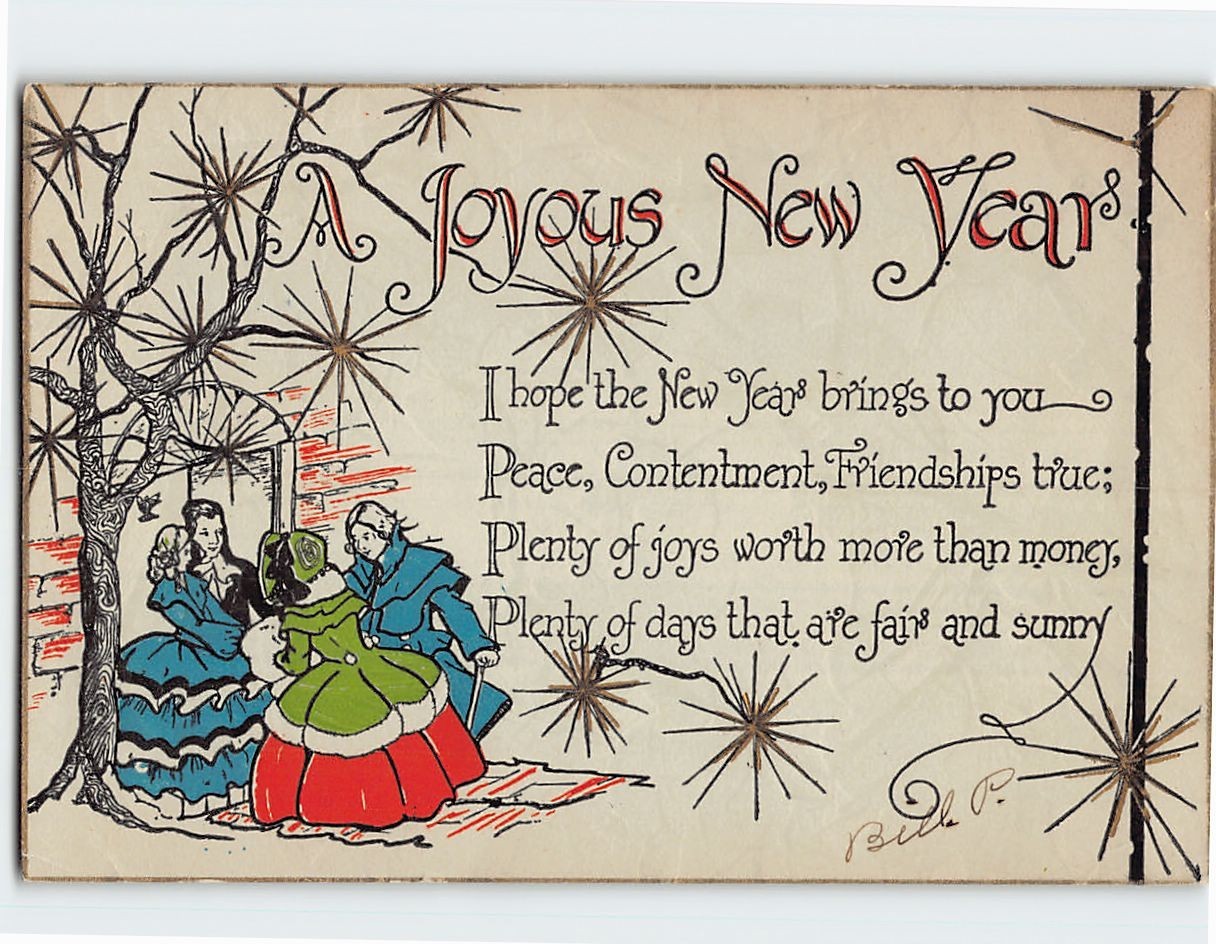 A Joyous New Year
I hope the New Year brings to you
Peace, Contentment, Friendships true;
Plenty of joys worth more than money,
Plenty of days that are fair and sunny
Bell P.